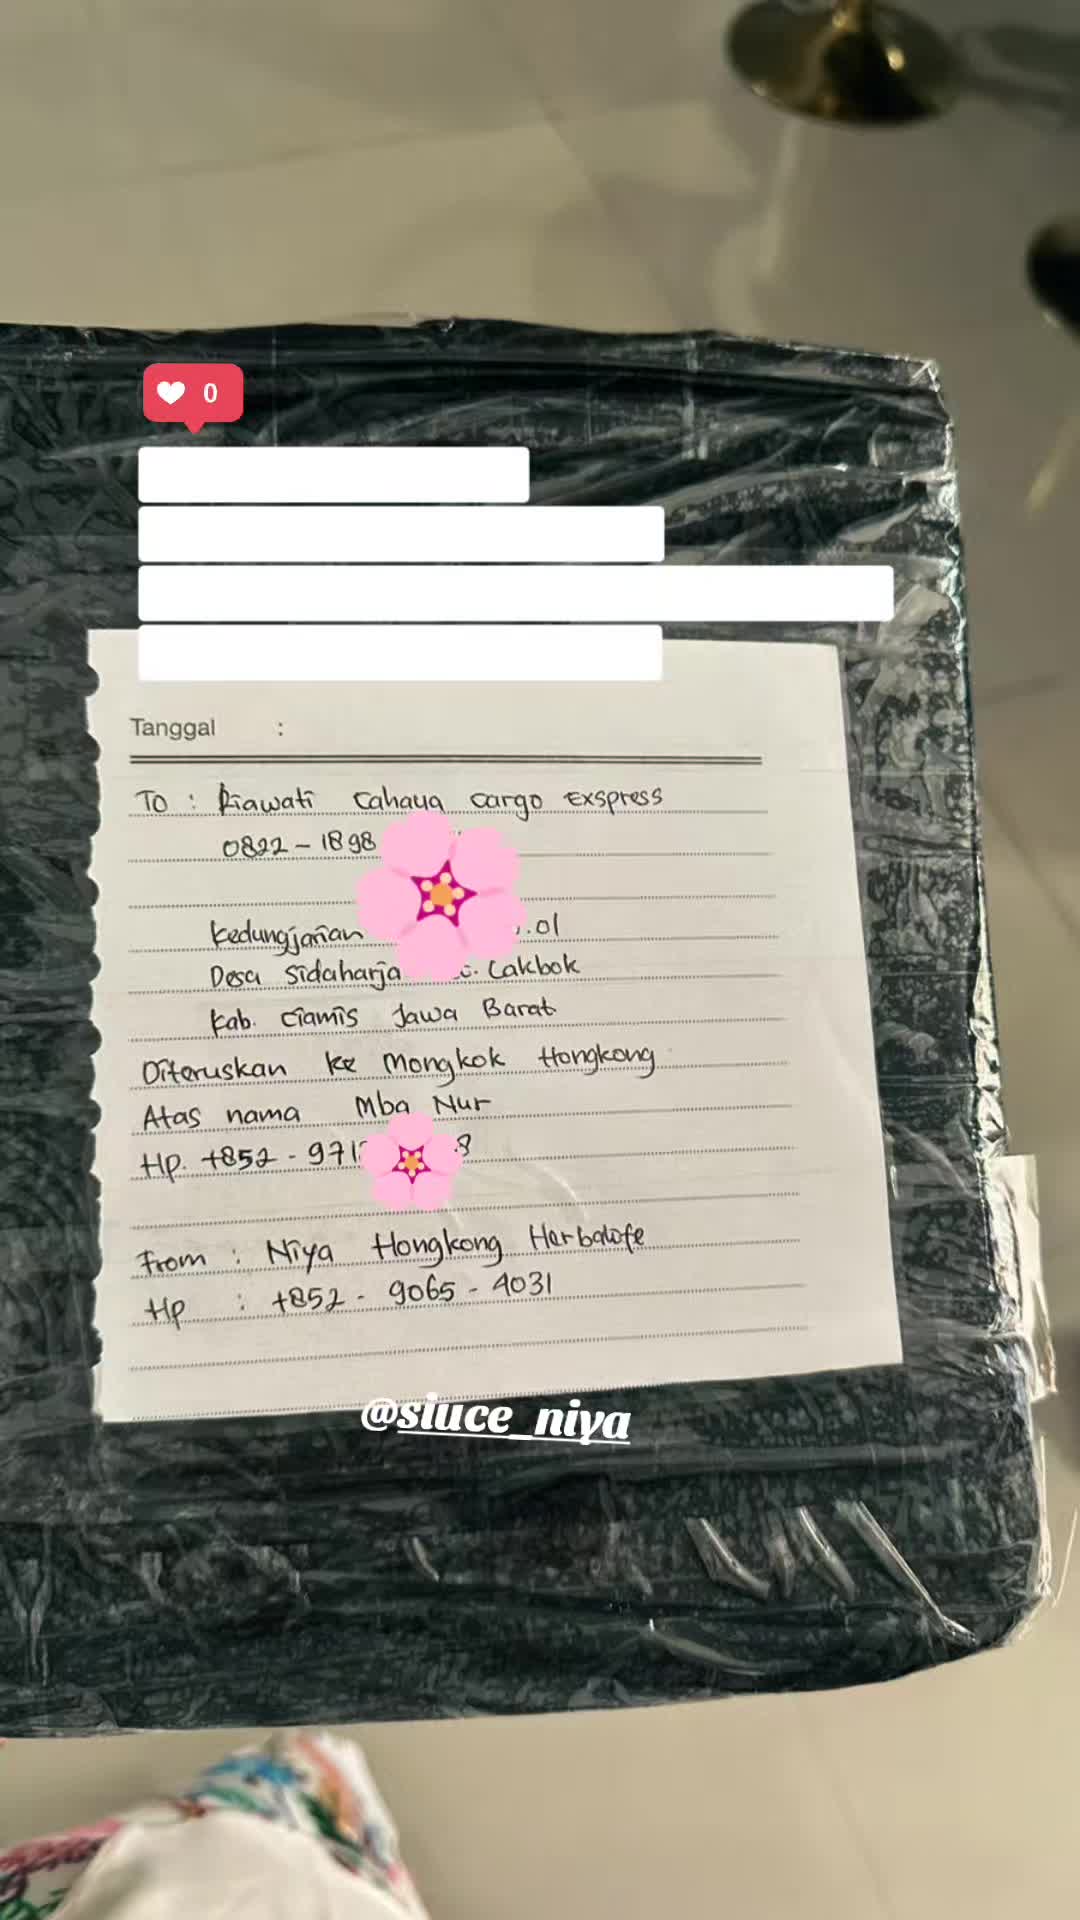 0
Tanggal :
To : Riawati Cahaya Cargo Exspress
0822 - 1898
Kedungjajian .01
Desa Sidaharja c. Lakbok
Kab. Ciamis Jawa Barat
Diteruskan ke Mongkok Hongkong
Atas nama Mba Nur
Hp. +852 - 971 8
From : Niya Hongkong Herbalife
Hp : +852 - 9065 - 4031
@siuce_niya